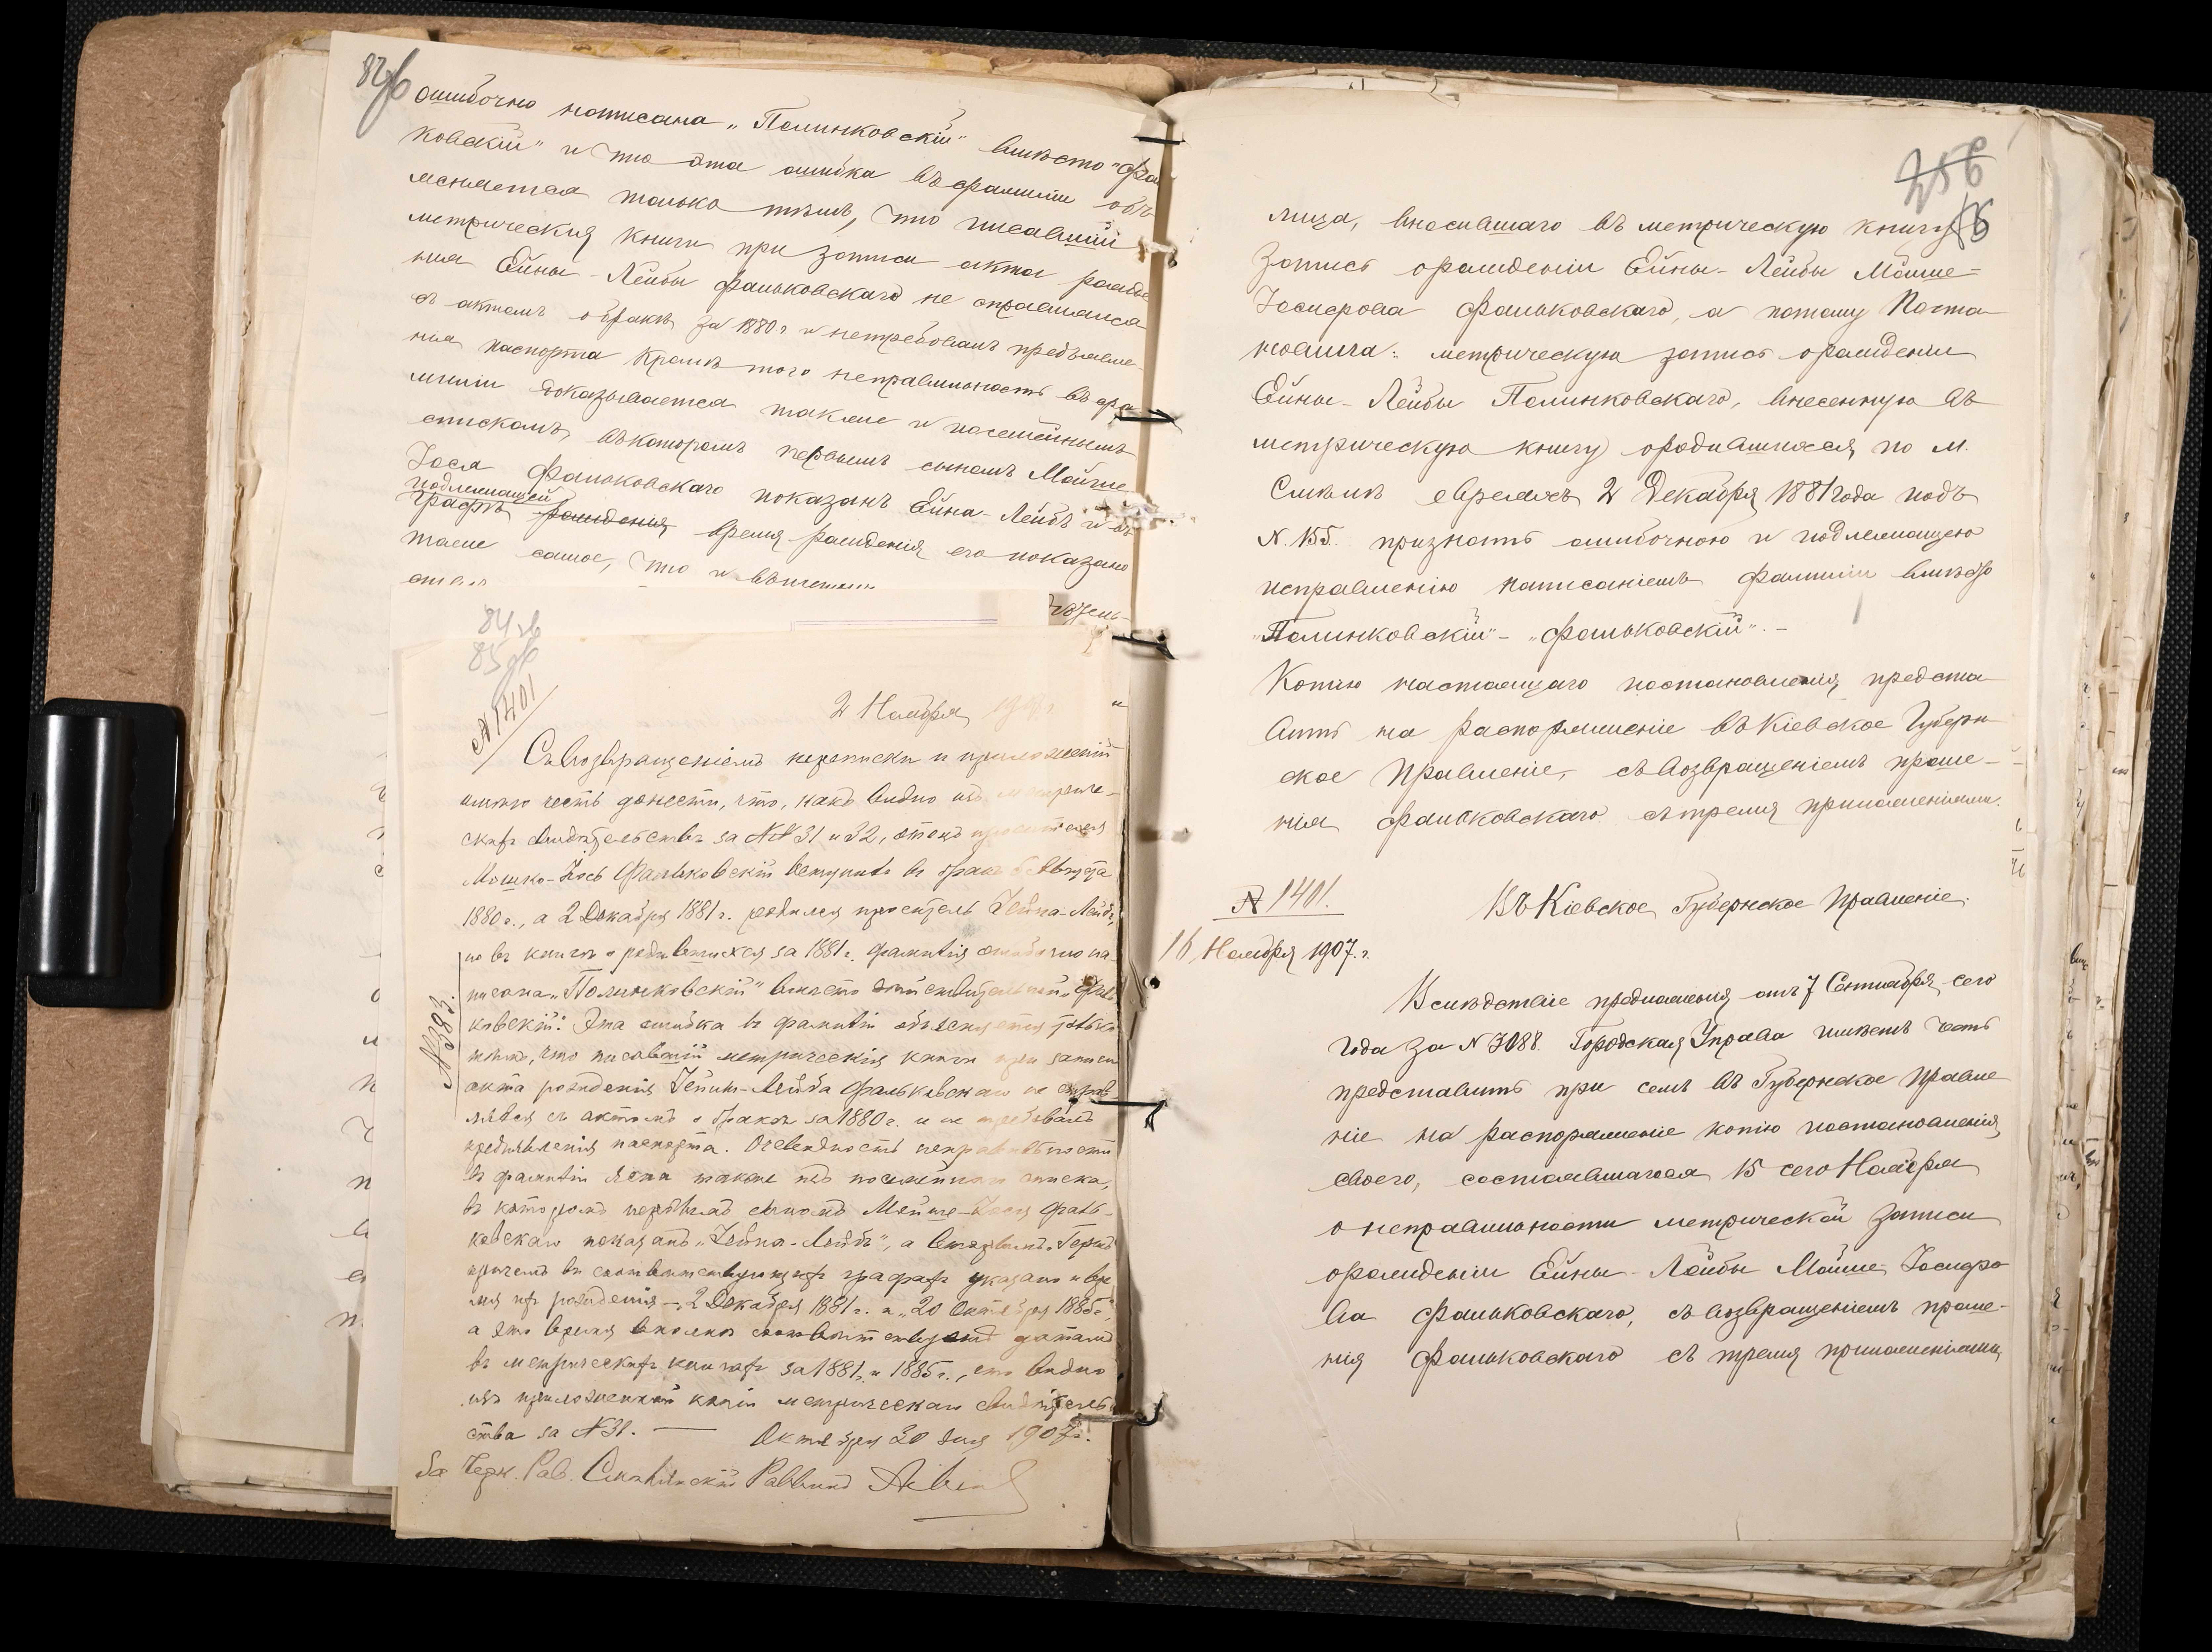 ошибочно написана „Полинковскій" вмѣсто „Фа
ковскій" и что эта ошибка въ фамиліи объ
ясняется только тѣмъ, что писавшій
метрическія книги при записи акта рожде
нія Ейны-Лейбы Фальковскаго не справился
съ актомъ о бракѣ за 1880 г. и нетребовалъ предъявле-
нія паспорта Кромѣ того неправильность въ фа
миліи доказывается также и посемейнымъ
спискомъ, въ которомъ первымъ сыномъ Мойше
Іося Фальковскаго показанъ Ейна-Лейбъ и въ
подлежащей
графѣ рожденія время рожденія его показано
тоже самое, что и въ
84 об
85 об
N 1401
2 Ноября
Съ возвращеніемъ переписки и приложеній
имѣю честь донести, что, какъ видно изъ метриче-
скихъ свидѣтельствъ за №№ 31 и 32, отецъ просителя
Мошко-Іось Фальковскій вступилъ въ бракъ Августа
1880 г., а 2 Декабря 1881 г. родился проситель Лейбъ,
но въ книгѣ о родившихся за 1881 г. фамилія ошибочно на
писана „Полинковскій" вмѣсто дѣйствительной „Фаль
ковскій". Эта ошибка въ фамиліи объясняется только
тѣмъ, что писавшій метрическія книги при записи
акта рожденія Лейба Фальковскаго не справ
лялся съ актомъ о бракѣ за 1880 г. и не требовалъ
предъявленія паспорта. Очевидность неправильности
въ фамиліи ясна также изъ посемейнаго списка,
въ которомъ первымъ сыномъ Мойше-Іося Фаль-
ковскаго показанъ „Лейбъ", а вторымъ
причемъ въ соотвѣтствующихъ графахъ указано и вре
мя ихъ рожденія — „2 Декабря 1881 г. и „20 Октября 1885 г.",
а это время вполнѣ соотвѣтствуетъ датамъ
въ метрическихъ книгахъ за 1881 г. и 1885 г., что видно
изъ приложенной копіи метрическаго свидѣтель
ства за № 31. — Октября 20 дня 1907 г.
N 383.
За Черк. Рав. Смѣлянскій Раввинъ
256
лица, вносившаго въ метрическую книгу
запись о рожденіи Ейны-Лейбы Мойше-
Іосифова Фальковскаго, а потому Поста
новила: метрическую запись о рожденіи
Ейны-Лейбы Полинковскаго, внесенную въ
метрическую книгу о родившихся по м.
Смѣлѣ евреяхъ 2 Декабря 1881 года подъ
N. 155. признать ошибочною и подлежащею
исправленію написаніемъ фамиліи вмѣсто
„Полинковскій" - „Фальковскій". -
Копію настоящаго постановленія предста
вить на распоряженіе въ Кіевское Губерн
ское Правленіе, съ возвращеніемъ проше-
нія Фальковскаго съ тремя приложеніями.
N 1401.
16 Ноября 1907 г.
Въ Кіевское Губернское Правленіе.
Вслѣдствіе предложенія отъ 7 Сентября сего
года за N 3088. Городская Управа имѣетъ честь
представить при семъ въ Губернское Правле
ніе на распоряженіе копію постановленія
своего, состоявшагося 15 сего Ноября
о неправильности метрической записи
о рожденіи Ейны-Лейбы Мойше Іосифо
ва Фальковскаго, съ возвращеніемъ проше-
нія Фальковскаго съ тремя приложеніями